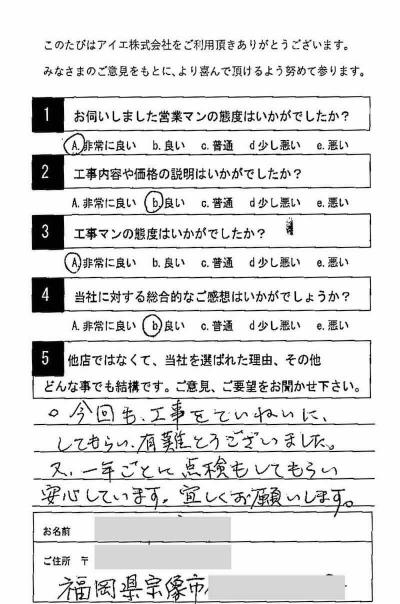 このたびはアイエ株式会社をご利用頂きありがとうございます。
みなさまのご意見をもとに、より喜んで頂けるよう努めて参ります。
1 お伺いしました営業マンの態度はいかがでしたか？
A.非常に良い b.良い c.普通 d少し悪い e.悪い
2 工事内容や価格の説明はいかがでしたか？
A.非常に良い b.良い c.普通 d少し悪い e.悪い
3 工事マンの態度はいかがでしたか？
A.非常に良い b.良い c.普通 d少し悪い e.悪い
4 当社に対する総合的なご感想はいかがでしょうか？
A.非常に良い b.良い c.普通 d少し悪い e.悪い
5 他店ではなくて、当社を選ばれた理由、その他
どんな事でも結構です。ご意見、ご要望をお聞かせ下さい。
○今回も、工事をていねいに、
してもらい、有難とうございました。
又、一年ごとに点検もしてもらい
安心しています。宜しくお願いします。
お名前
ご住所 〒
福岡県宗像市